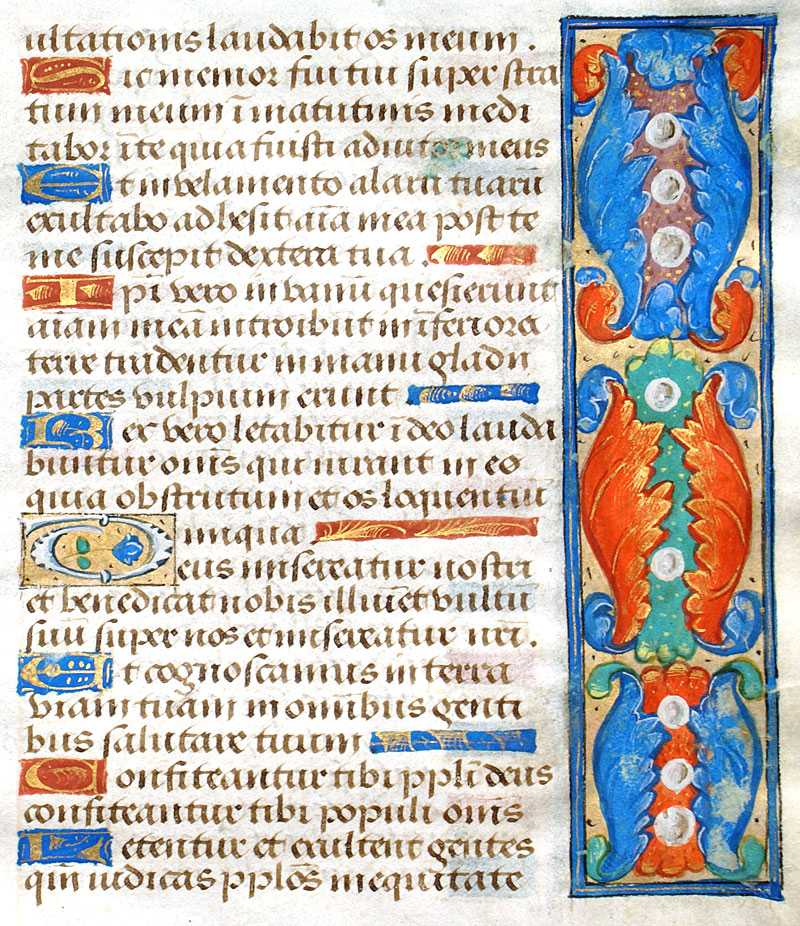 ultationis laudabit os meum.
Sic memor fui tui super stra
tum meum ī matutinis medi
tabor ī te quia fuisti adiutor meus
Et in velamento alarū tuarū
exultabo adhesit aīa mea post te
me suscepit dextera tua.
Ipi vero in vanū quesierunt
aīam meā introibut in inferiora
terre tradentur in manu gladii
partes vulpium erunt
Rex vero letabitur ī deo lauda
buntur omīs qui iurant in eo
quia obstrutum et os loquentiū
iniqua
Deus misereatur nostri
et benedicat nobis illuīet vultū
suū super nos et misereatur nr̄i.
Et cognoscamus in terra
viam tuam in omnibus genti
bus salutare tuum
Confiteantur tibi ppl̄i deus
confiteantur tibi populi omīs
Letentur et exultent gentes
qm̄ iudicas ppl̄os in equitate